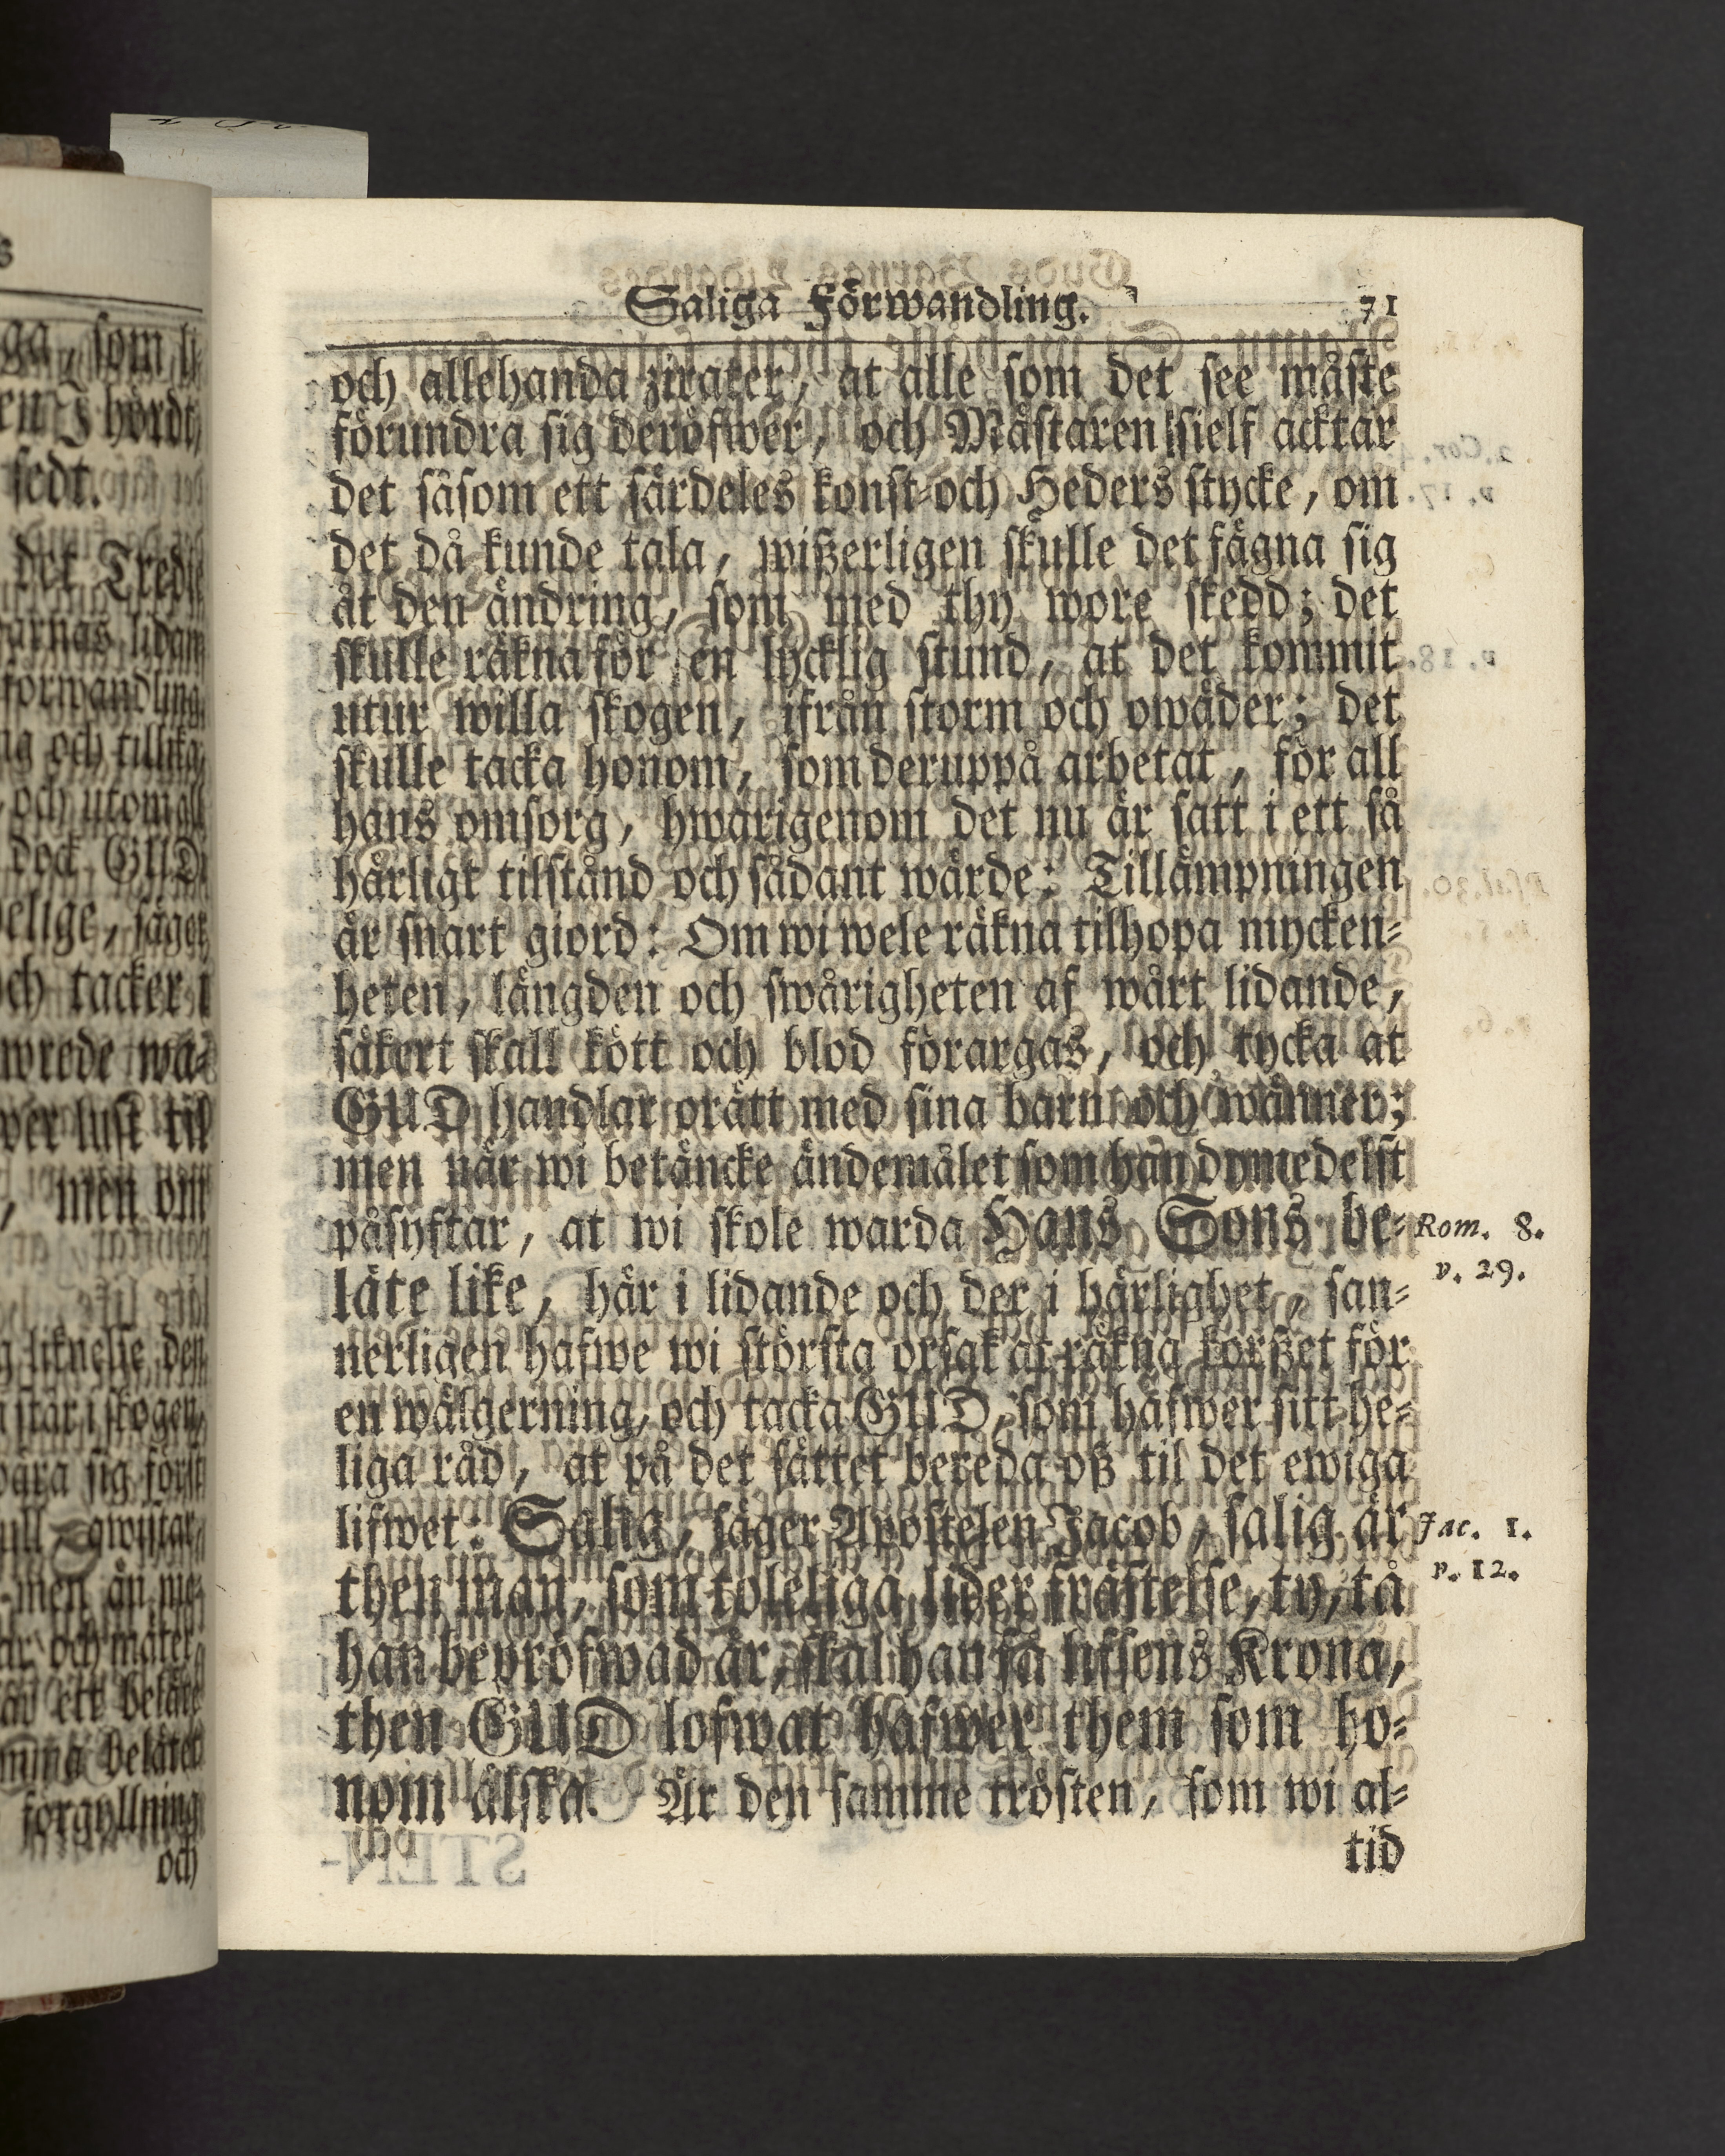 Saliga Förwandling. 71
och allehanda zirater, at alle som det see måste
förundra sig deröfwer, och Mästaren sielf acktar
det såsom ett särdeles konst-och Heders stycke, om
det då kunde tala, wißerligen skulle det fägna sig
åt den ändring, som med thy wore skedd; det
skulle räkna för en lycklig stund, at det kommit
utur willa skogen, ifrån storm och owäder; det
skulle tacka honom, som deruppå arbetat, för all
hans omsorg, hwarigenom det nu är satt i ett så
härligt tilstånd och sådant wärde: Tillämpningen
är snart giord: Om wi wele räkna tilhopa mycken-
heten, längden och swårigheten af wårt lidande,
säkert skall kött och blod förargas, och tycka at
GUD handlar orätt med sina barn och wänner;
men när wi betäncke ändemålet som han dymedelst
påsyftar, at wi skole warda Hans Sons be-
Rom. 8.
v. 29.
läte like, här i lidande och der i härlighet, san-
nerligen hafwe wi största orsak at räkna korßet för
en wälgerning, och tacka GUD, som hafwer sitt he-
liga råd, at på det sättet bereda oß til det ewiga
lifwet: Salig, säger Apostelen Jacob, salig är
Jac. 1.
v. 12.
then man, som toleliga lider frästelse, ty, tå
han bepröfwad är, skal han få lifsens Krona,
then GUD lofwat hafwer them som ho-
nom älska. Är den samme trösten, som wi al-
tid